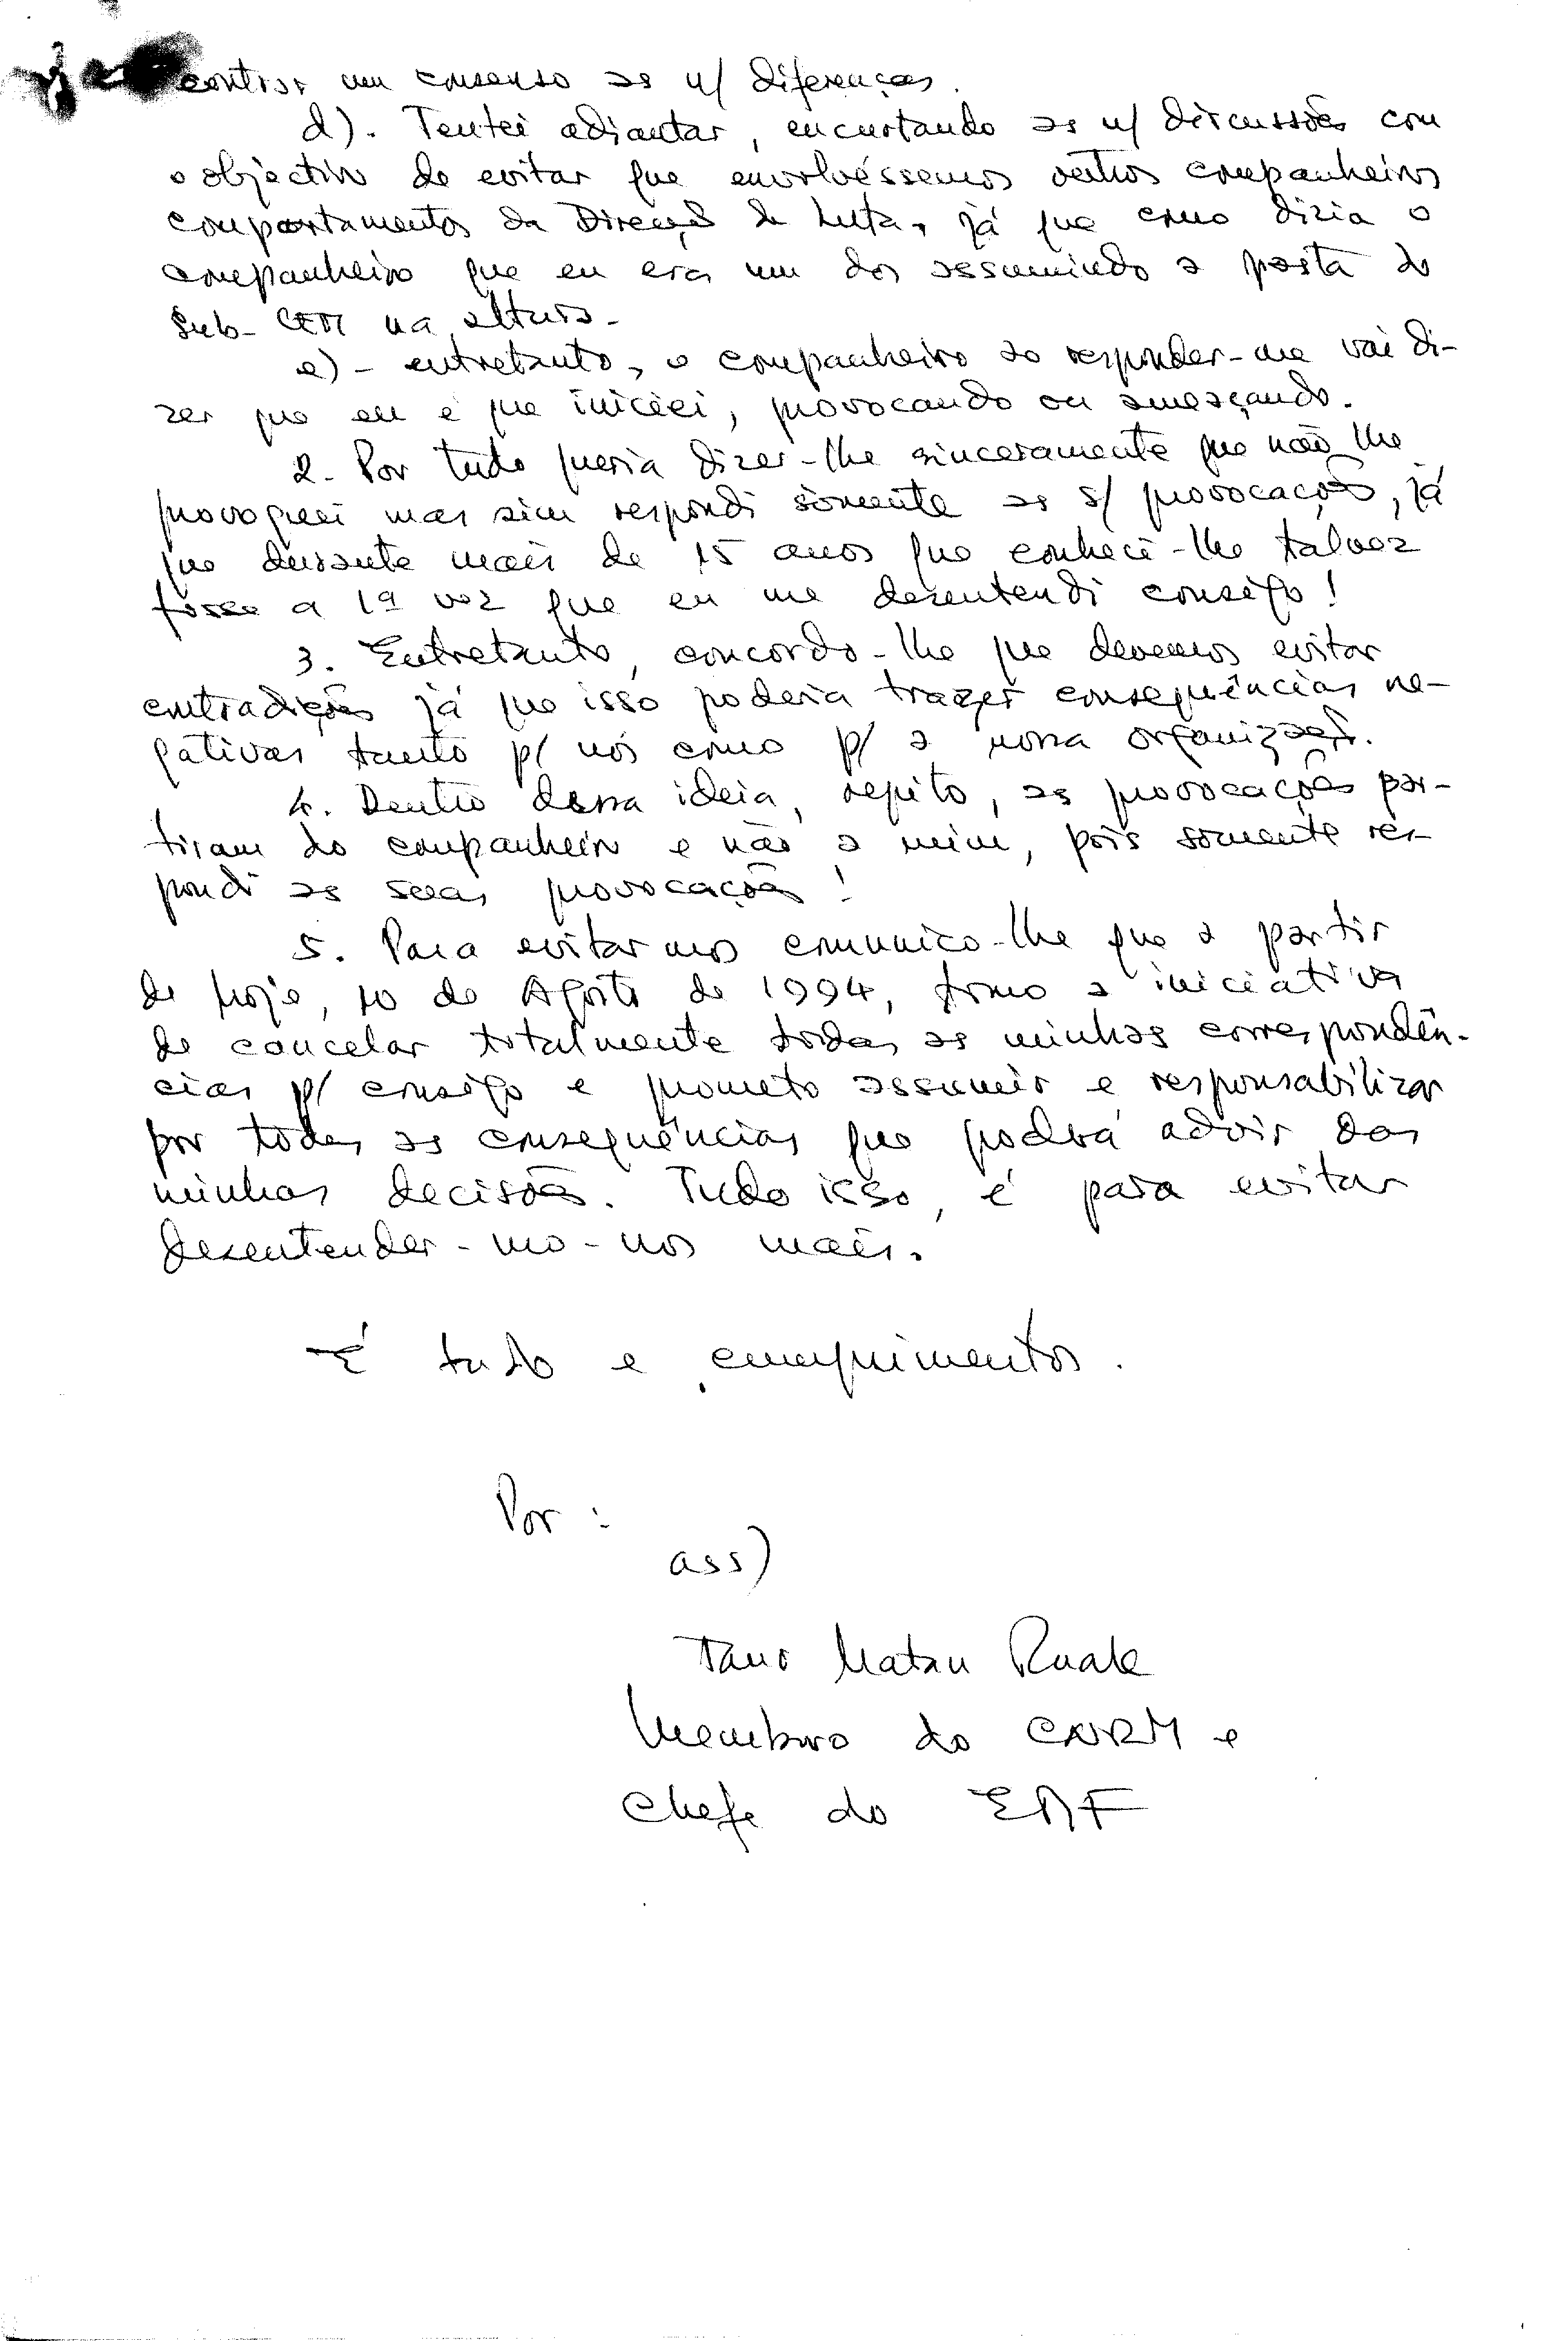 contrar um consenso as n/ diferenças.
d). Tentei adiantar, encurtando as n/ discussões com
o objectivo de evitar que envolvéssemos outros companheiros
comportamentos da Direcção da Luta, já que como dizia o
companheiro que eu era um dos assumindo a pasta do
Sub-CEM na altura.
e) - entretanto, o companheiro ao responder-me vai di-
zer que eu é que iniciei, provocando ou ameaçando.
2. Por tudo queria dizer-lhe sinceramente que não lhe
provoquei mas sim respondi sòmente as s/ provocação, já
que durante mais de 15 anos que conheci-lhe talvez
fosse a 1ª vez que eu me desentendi consigo!
3. Entretanto, concordo-lhe que devemos evitar
contradições já que isso poderia trazer consequências ne-
gativas tanto p/ nós como p/ a nossa organização.
4. Dentro dessa ideia, repito, as provocações par-
tiram do companheiro e não a mim, pois somente res-
pondi as suas provocações!
5. Para evitarmos comunico-lhe que a partir
de hoje, 10 de Agosto de 1994, tomo a iniciativa
de cancelar totalmente todas as minhas correspondên-
cias p/ consigo e prometo assumir e responsabilizar
por todas as consequências que poderá advir das
minhas decisões. Tudo isso, é para evitar
desentender-mo-nos mais.
É tudo e cumprimentos.
Por:
ass)
Taur Matan Ruak
Membro do CNRM e
Chefe do EMF